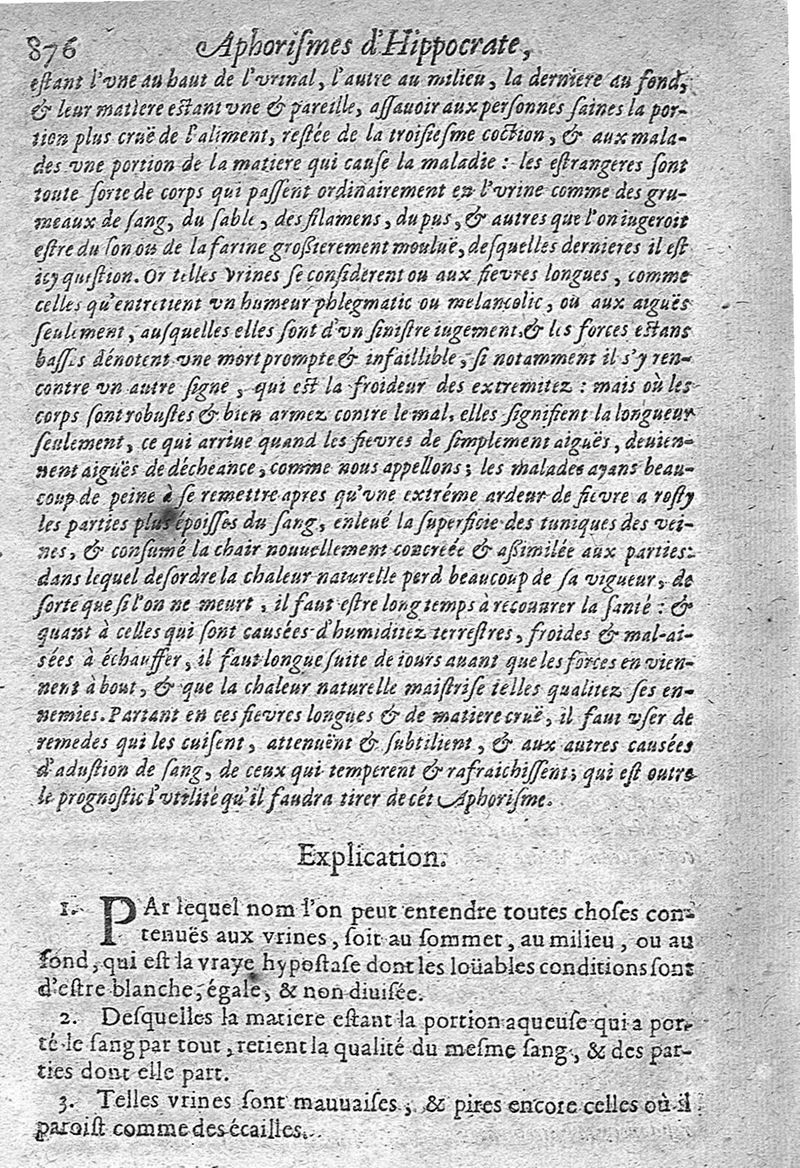 876 Aphoriſmes d'Hippocrate,
eſtant l'vne au haut de l'vrinal, l'autre au milieu, la derniere au fond,
& leur matiere eſtant vne & pareille, aſſauoir aux perſonnes ſaines la por-
tion plus cruë de l'aliment, reſtée de la troiſieſme coction, & aux mala-
des vne portion de la matiere qui cauſe la maladie : les eſtrangeres ſont
toute ſorte de corps qui paſſent ordinairement en l'vrine comme des gru-
meaux de ſang, du ſable, des filamens, du pus, & autres que l'on iugeroit
eſtre du ſon ou de la farine großierement mouluë, deſquelles dernieres il eſt
icy queſtion. Or telles vrines ſe conſiderent ou aux fievres longues, comme
celles qu'entretient vn humeur phlegmatic ou melancolic, ou aux aiguës
ſeulement, auſquelles elles ſont d'vn ſiniſtre iugement, & les forces eſtans
baſſes dénotent vne mort prompte & infaillible, ſi notamment il s'y ren-
contre vn autre ſigne, qui eſt la froideur des extremitez : mais où les
corps ſont robuſtes & bien armez contre le mal, elles ſignifient la longueur
ſeulement, ce qui arriue quand les fievres de ſimplement aiguës, deuien-
nent aiguës de décheance, comme nous appellons ; les malades ayans beau-
coup de peine à ſe remettre apres qu'vne extréme ardeur de fievre a roſty
les parties plus époiſſes du ſang, enleué la ſuperficie des tuniques des vei-
nes, & conſumé la chair nouuellement concreée & aßimilée aux parties:
dans lequel deſordre la chaleur naturelle perd beaucoup de ſa vigueur, de
ſorte que ſi l'on ne meurt, il faut eſtre long temps à recouurer la ſanté : &
quant à celles qui ſont cauſées d'humiditez terreſtres, froides & mal-ai-
sées à échauffer, il faut longue ſuite de iours auant que les forces en vien-
nent à bout, & que la chaleur naturelle maiſtriſe ielles qualitez ſes en-
nemies. Partant en ces fievres longues & de matiere cruë, il faut vſer de
remedes qui les cuiſent, attenuënt & ſubtilient, & aux autres cauſées
d'aduſtion de ſang, de ceux qui temperent & rafraichiſſent ; qui eſt outre
le prognoſtic l'vtilité qu'il faudra tirer de cét Aphoriſme.
Explication.
1. PAr lequel nom l'on peut entendre toutes choſes con-
tenuës aux vrines, ſoit au ſommet, au milieu, ou au
fond, qui eſt la vraye hypoſtaſe dont les loüables conditions ſont
d'eſtre blanche, égale, & non diuiſée.
2. Deſquelles la matiere eſtant la portion aqueuſe qui a por-
té le ſang par tout, retient la qualité du meſme ſang, & des par-
ties dont elle part.
3. Telles vrines ſont mauuaiſes, & pires encore celles où il
paroiſt comme des écailles.